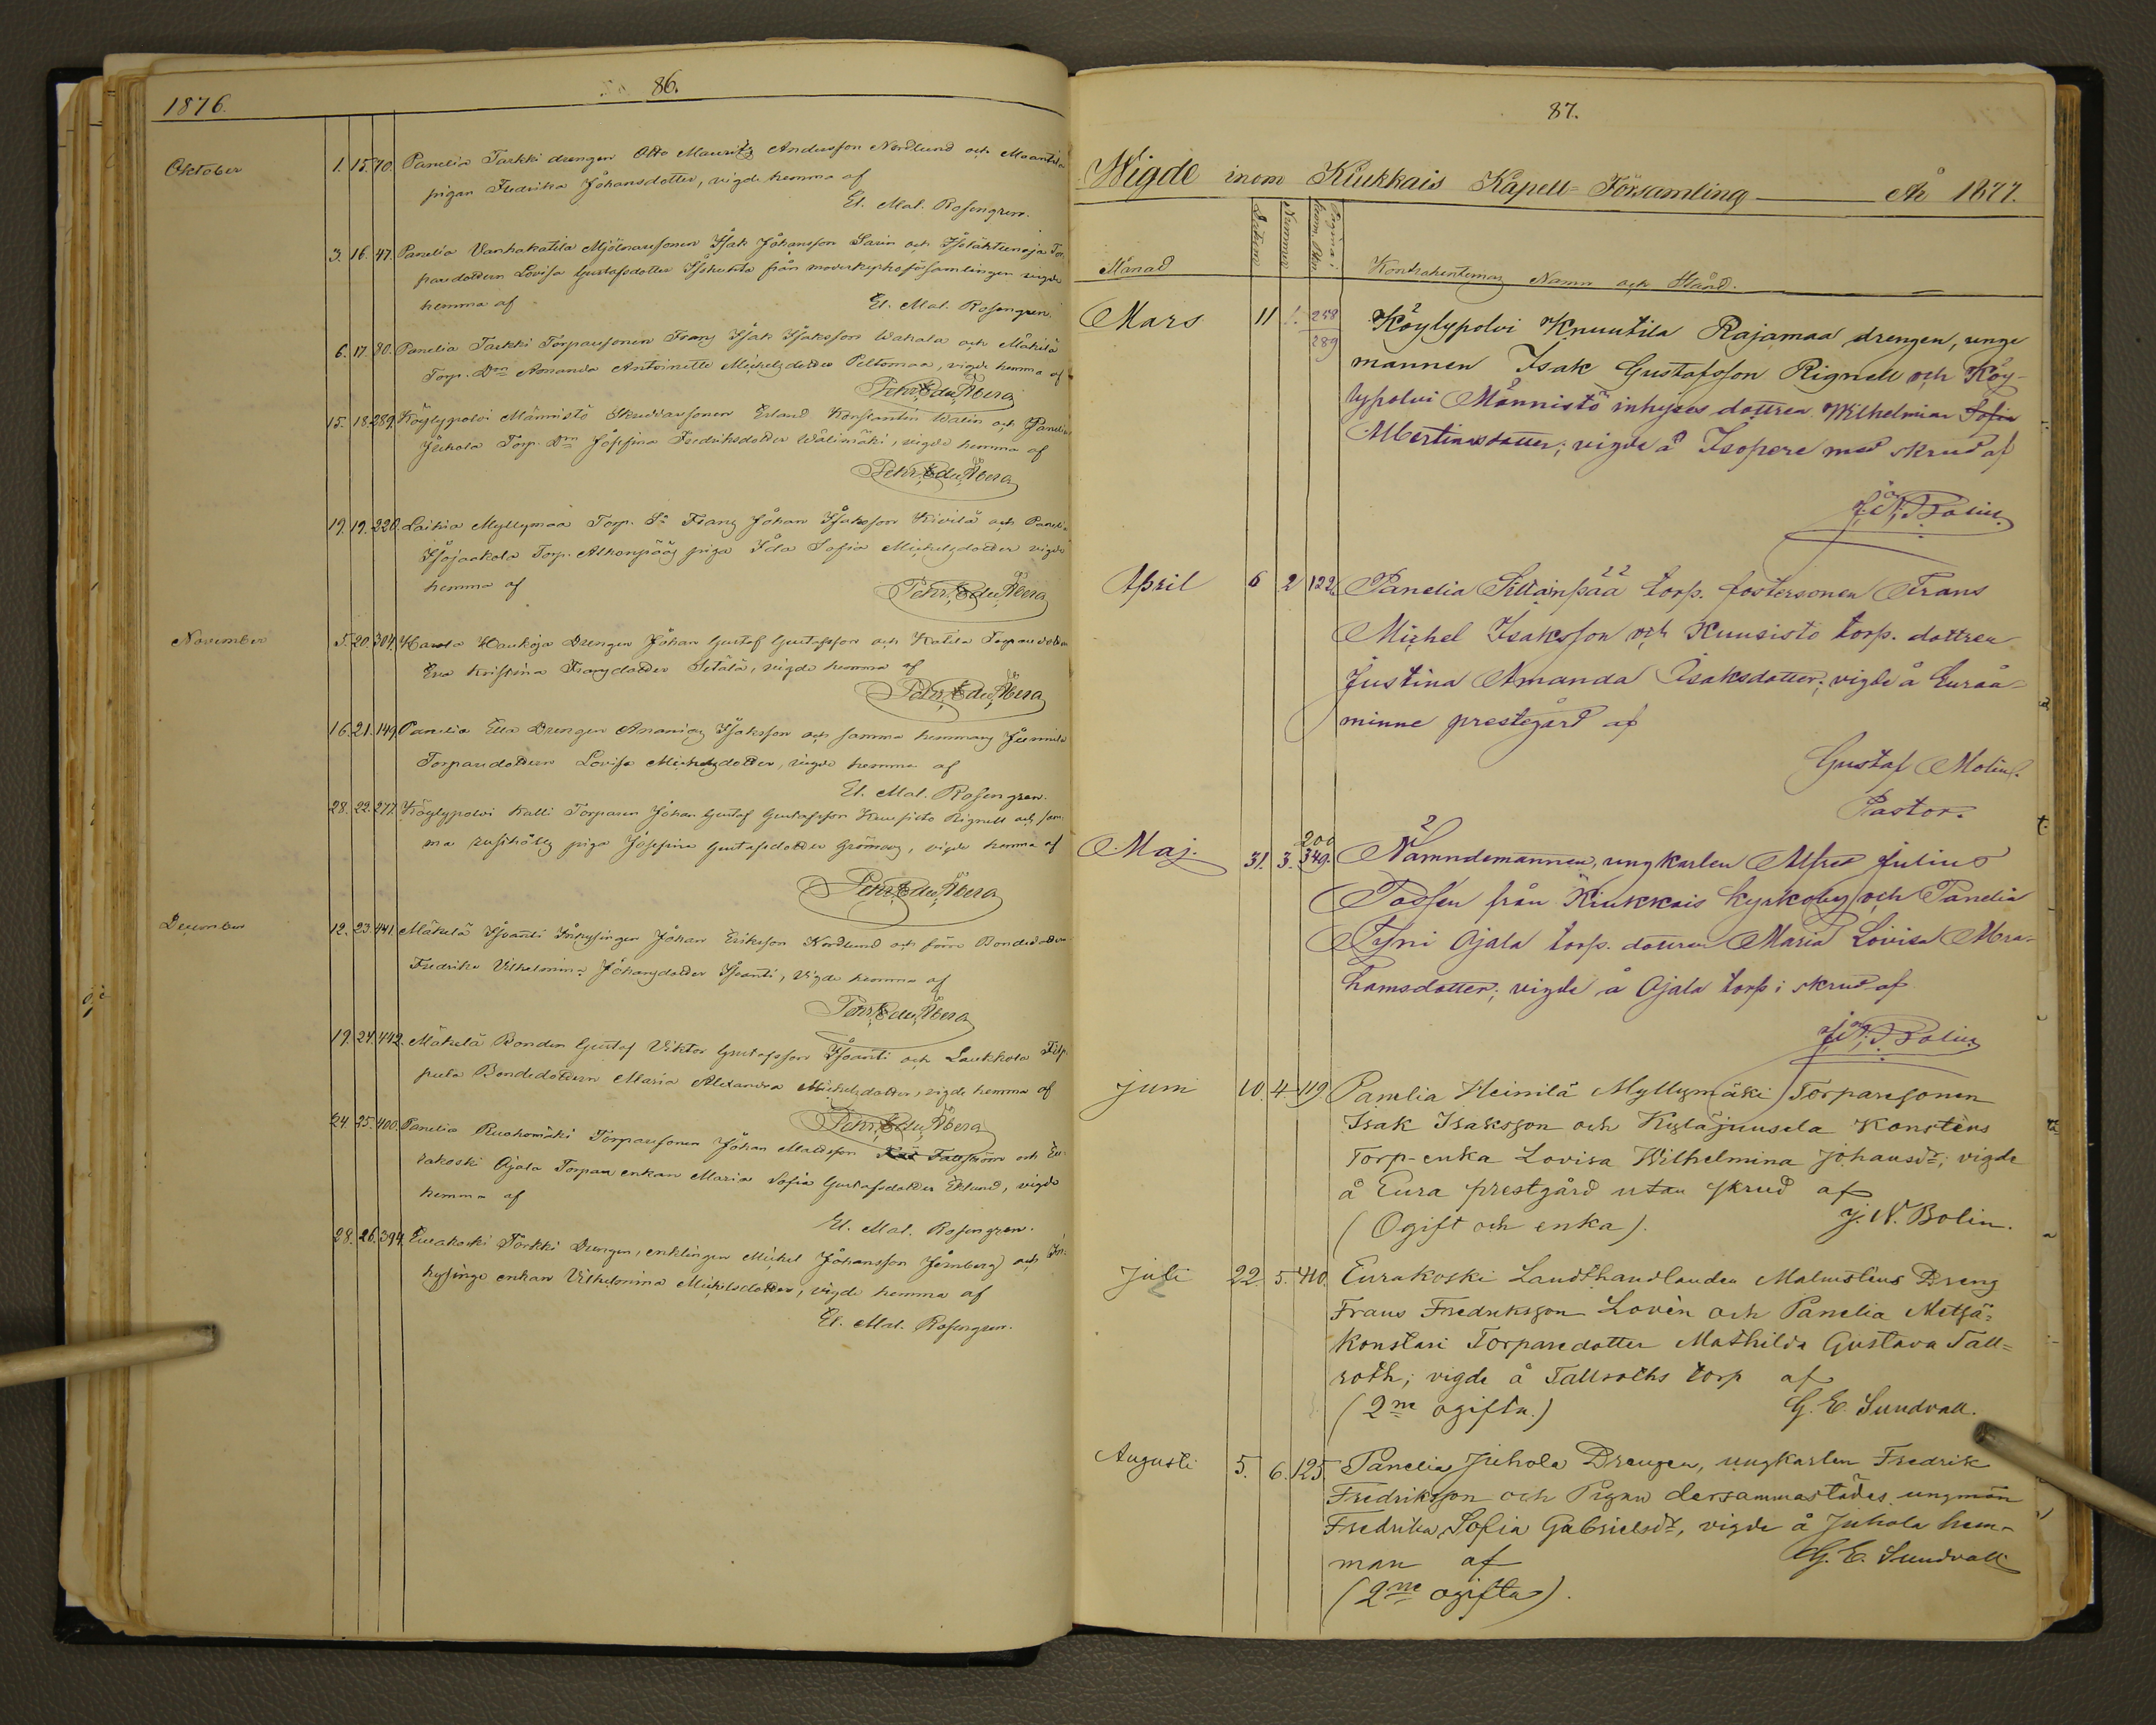 86.
1876.
Oktober 1. 15. 70. Panelia Tarkki drengen Otto Mauritz Andersson Nordlund och Maantila
pigan Fredrika Johansdotter, vigde hemma af
El. Mal. Rosengren.
3. 16. 47. Panelia Vanhakatila Mjölnaresonen Isak Johansson Sarin och
paredottern Lovisa Gustafsdotter från moderkyrkoförsamlingen vigde
hemma af El. Mal. Rosengren.
6. 17. 80. Panelia Tarkki Torparesonen Franz Isak Isaksson Wahala och Mäkelä
Torp. Don Amanda Antoinette Michelsdotter Peltomaa, vigde hemma af
Pehr Edv. Åberg
15. 18. 289. Köylypolvi Männistö Skräddaresonen Erland Konstantin Walin och Panelia
Juhola Torp. Dm Josefina Fredriksdotter Wälimäki, vigde hemma af
Pehr Edv. Åberg
19. 19. 220. Laihia Myllymaa Torp. Sn Franz Johan Isaksson Kivilä och Panelia
Torp. piga Ida Sofia Michelsdotter vigde
hemma af Pehr Edv. Åberg
November 5. 20. 304. Harola Haukoja Drengen Johan Gustaf Gustafsson och Katila Torparedottern
Eva Kristina Franzdotter Setälä, vigde hemma af
Pehr Edv. Åberg
16. 21. 149. Panelia Eka Drengen Ananias Isaksson och samma hemmans
Torparedottern Lovisa Michelsdotter, vigde hemma af
El. Mal. Rosengren.
28. 22. 277. Köylypolvi Kalli Torparen Johan Gustaf Gustafsson Kuusisto Rignell och sam-
ma piga Josefina Gustafsdotter Grönroos, vigde hemma af
Pehr Edv. Åberg
December 12. 23. 441. Mäkelä Isoantti Inhysingen Johan Eriksson Nordlund och förre Bondedottern
Fredrika Vilhelmina Johansdotter Isoanti, vigde hemma af
Pehr Edv. Åberg
19. 24. 442. Mäkelä Bonden Gustaf Viktor Gustafsson Isoanti och Laukkola Filp-
pula Bondedottern Maria Alexandra Michelsdotter, vigde hemma af
Pehr Edv. Åberg
24. 25. 400. Panelia Ruohomäki Torparesonen Johan Mattsson och Eu-
rakoski Ojala Torpare enkan Maria Sofia Gustafsdotter Eklund, vigde
hemma af
El. Mal. Rosengren.
28. 26. 394. Eurakoski Törkki Drengen, enklingen Michel Johansson Jernberg och In-
hysinge enkan Vilhelmina Michelsdotter, vigde hemma af
El. Mal. Rosengren.
87.
Wigde inom Kiukkais Kapell-Församling År 1877.
Månad Datum Nummer Pagina i Komm. Bkn Kontrahenternas Namn och Stånd.
Mars 11 1. 258 Köylypolvi Knuutila Rajamaa drengen, unge
289 mannen Isak Gustafsson Rignell och Köy-
lypolvi Männistö inhyses dottren Wilhelmina Sofia
Albertinasdotter; vigde å Isopere med skrud af
J. N. Bolin.
April 6 2 122. Panelia Sillanpää torp. fostersonen Frans
Michel Isaksson och Kuusisto torp. dottren
Justina Amanda Isaksdotter; vigde å Euraå-
minne prestegård af
Gustaf Molin.
Pastor.
200
Maj. 31. 3. 349. Nämndemannen, ungkarlen Alfred Julius
från Kiukkais Kyrkoby och Panelia
Ojala torp. dottren Maria Lovisa Abra-
hamsdotter; vigde å Ojala torp i skrud af
J. N. Bolin
Juni 10. 4. 119. Panelia Heinilä Myllymäki Torparesonen
Isak Isaksson och Kyläjuusela Konstens
Torp-enka Lovisa Wilhelmina Johansdr; vigde
å Eura prestgård utan skrud af
(Ogift och enka). J. N. Bolin.
Juli 22. 5. 410. Eurakoski Landthandlanden Malmsténs Dreng
Frans Fredriksson Lovèn och Panelia Metsä-
konstari Torparedotter Mathilda Gustava Tall-
roth; vigde å Tallroths torp af
(2ne ogifta.) G. E. Sundvall.
Augusti 5. 6. 125. Panelia Juhola Drengen, ungkarlen Fredrik
Fredriksson och Pigan dersammastädes ungmön
Fredrika Sofia Gabrielsdr, vigde å Juhola hem-
man af G. E. Sundvall
(2ne ogifta).